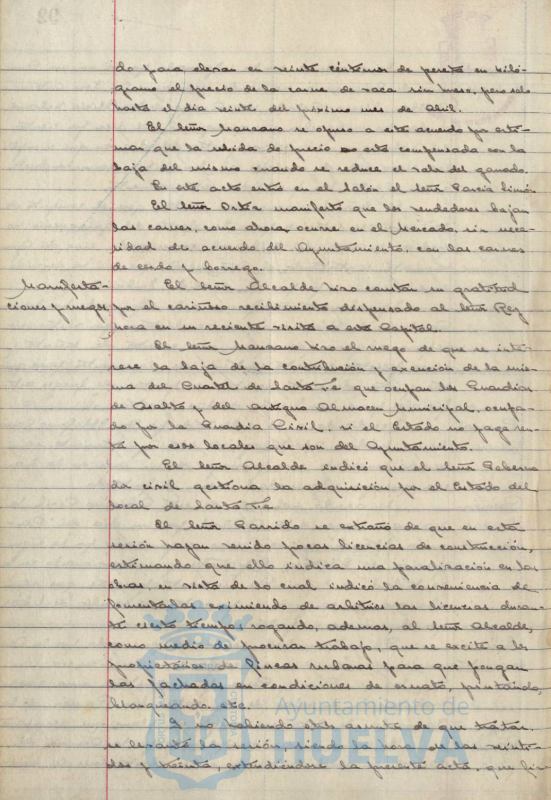 do para elevar en veinte céntimos de peseta en kiló-
gramo el precio de la carne de vaca sin hueso, pero solo
hasta el dia veinte del próximo mes de Abril.
El señor Manzano se opuso a este acuerdo por esti-
mar que la subida de precio está compensada con la
baja del mismo cuando se reduce el valor del ganado.
En este acto entró en el Salón el señor García Limón
El señor Ortiz manifestó que los vendedores bajan
las carnes, como ahora ocurre en el Mercado, sin nece-
sidad de acuerdo del Ayuntamiento, con las carnes
de cerdo y borrego.
Manifesta-
ciones y ruegos
El señor Alcalde hizo constar su gratitud
por el cariñoso recibimiento dispensado al señor Rey
en su reciente visita a esta Capital.
El señor Manzano hizo el ruego de que se inte-
rese la baja de la contribución y exención de la mis-
ma del Cuartel de Santa Fe que ocupan los Guardias
de Asalto y del antiguo Almacen Municipal, ocupa-
do por la Guardia Civil, si el Estado no paga ren-
ta por esos locales que son del Ayuntamiento.
El señor Alcalde indicó que el señor Goberna
dor civil gestiona la adquisición por el Estado del
local de Santa Fe
El señor Garrido se extrañó de que en esta
sesión hayan venido pocas licencias de construcción,
estimando que ello indica una paralización en las
obras en vista de lo cual indicó la conveniencia de
fomentarlas eximiendo de arbitrios las licencias duran-
te cierto tiempo, rogando, además, al señor Alcalde,
como medio de procurar trabajo, que se excite a los
propietarios de fincas urbanas para que pongan
las fachadas en condiciones de ornato, pintando,
blanqueando, etc.
Y no habiendo otro asunto de que tratar,
se levantó la sesión, siendo la hora de las veinti-
dos y treinta, extendiéndose la presente acta, que fir-
Ayuntamiento de
HUELVA